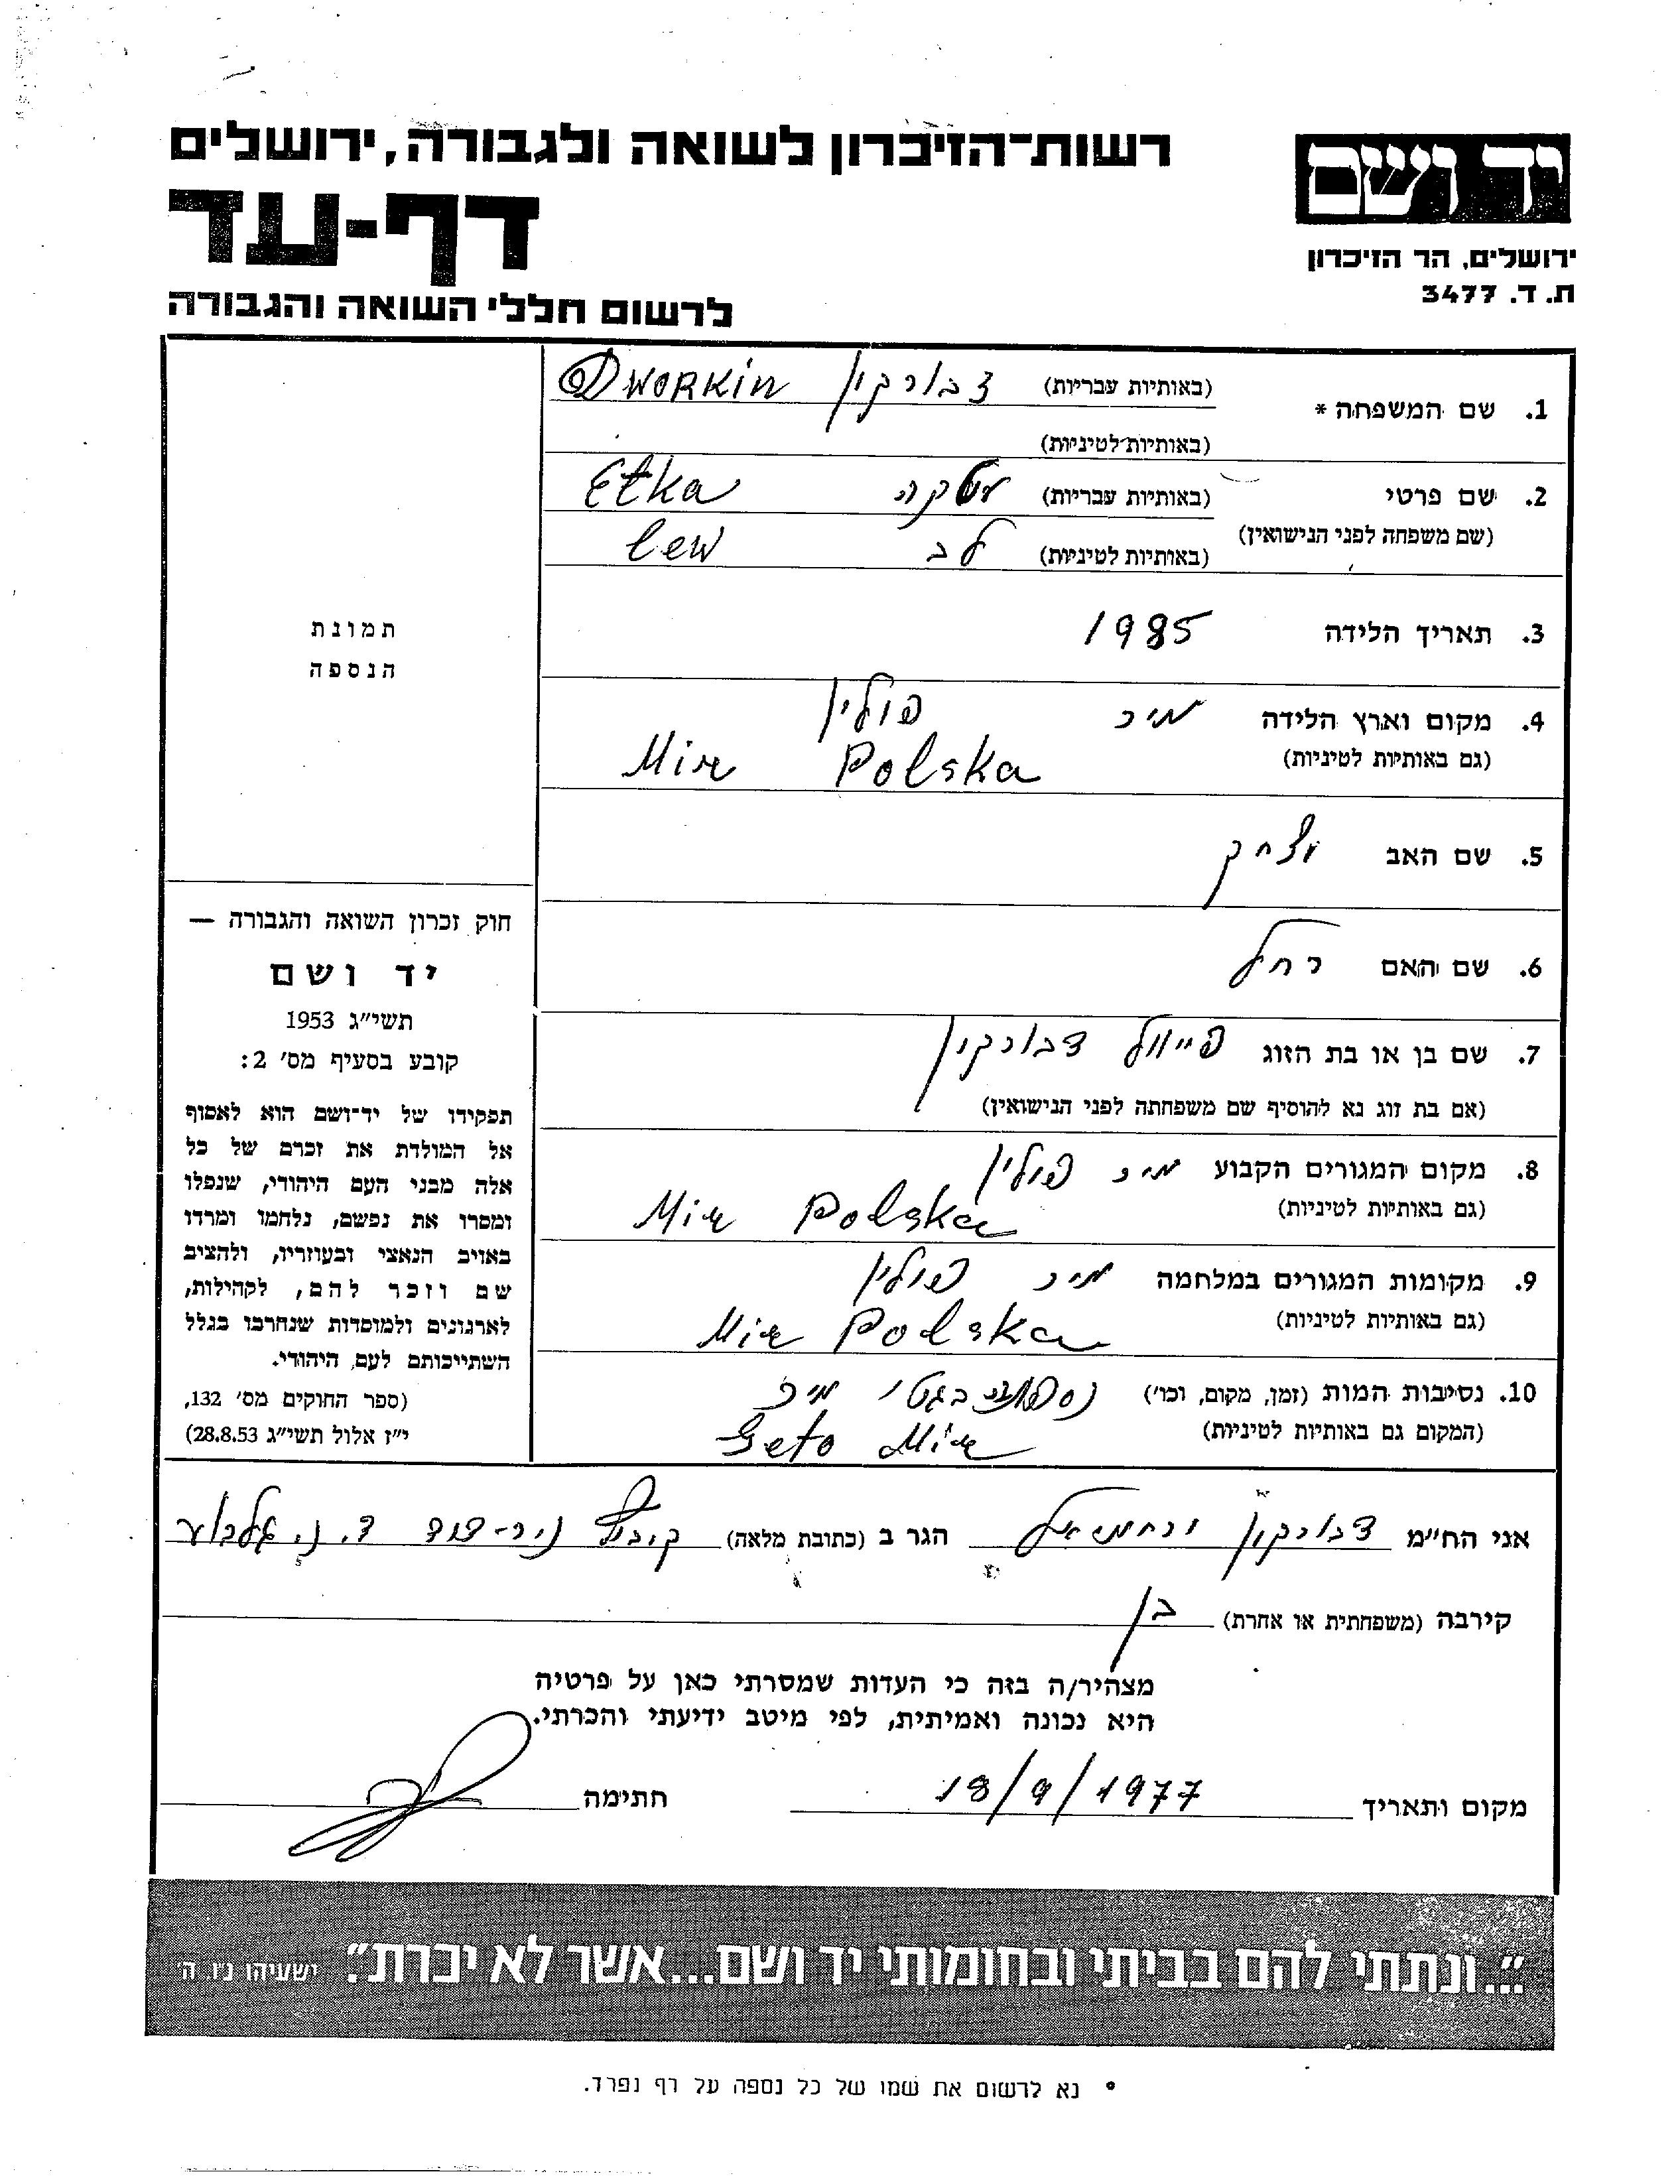 יד ושם
רשות־הזיכרון לשואה ולגבורה, ירושלים
דף-עד
ירושלים, הר הזיכרון
ת. ד. 3477
לרשום חללי השואה והגבורה
1. שם המשפחה * (באותיות עבריות) דבורקין Dworkin
(באותיות לטיניות)
2. שם פרטי (באותיות עבריות) עטקה Etka
(שם משפחה לפני הנישואין) (באותיות לטיניות) לב Lew
3. תאריך הלידה
4. מקום וארץ הלידה מיר פולין
(גם באותיות לטיניות) Mir Polska
5. שם האב יצחק
6. שם האם רחל
7. שם בן או בת הזוג פייוול דבורקין
(אם בת זוג נא להוסיף שם משפחתה לפני הנישואין)
8. מקום המגורים הקבוע מיר פולין
(גם באותיות לטיניות) Mir Polska
9. מקומות המגורים במלחמה מיר פולין
(גם באותיות לטיניות) Mir Polska
10. נסיבות המות (זמן, מקום, וכו') בגטו מיר
(המקום גם באותיות לטיניות) Geto Mir
תמונת
הנספה
חוק זכרון השואה והגבורה —
יד ושם
תשי"ג 1953
קובע בסעיף מס' 2:
תפקידו של יד־ושם הוא לאסוף
אל המולדת את זכרם של כל
אלה מבני העם היהודי, שנפלו
ומסרו את נפשם, נלחמו ומרדו
באויב הנאצי ובעוזריו, ולהציב
שם וזכר להם, לקהילות,
לארגונים ולמוסדות שנחרבו בגלל
השתייכותם לעם היהודי.
(ספר החוקים מס' 132,
י"ז אלול תשי"ג 28.8.53)
אני הח"מ דבורקין ירחמיאל הגר ב (כתובת מלאה) קיבוץ ניר-דוד ד. נ. גלבוע
קירבה (משפחתית או אחרת) בן
מצהיר/ה בזה כי העדות שמסרתי כאן על פרטיה
היא נכונה ואמיתית, לפי מיטב ידיעתי והכרתי.
מקום ותאריך 18/9/1977 חתימה
"...ונתתי להם בביתי ובחומותי יד ושם...אשר לא יכרת". ישעיהו נ"ו, ה'
* נא לרשום את שמו של כל נספה על דף נפרד.